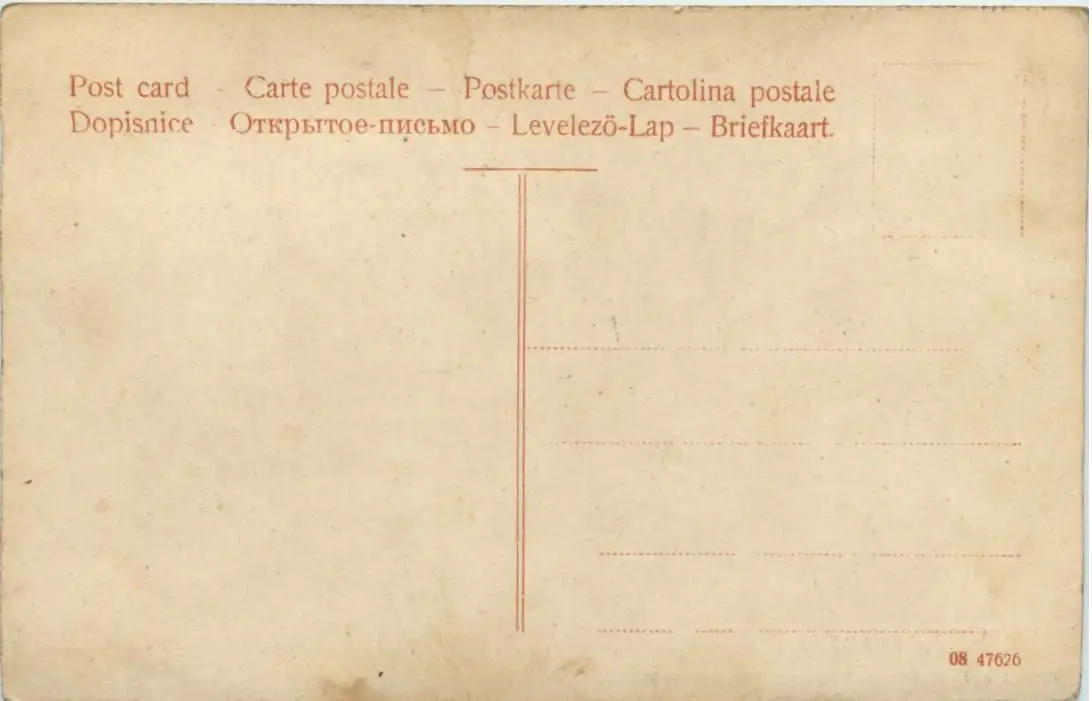 Post card - Carte postale – Postkarte – Cartolina postale
Dopisnice - Открытое-письмо – Levelezö-Lap – Briefkaart.
08 47626